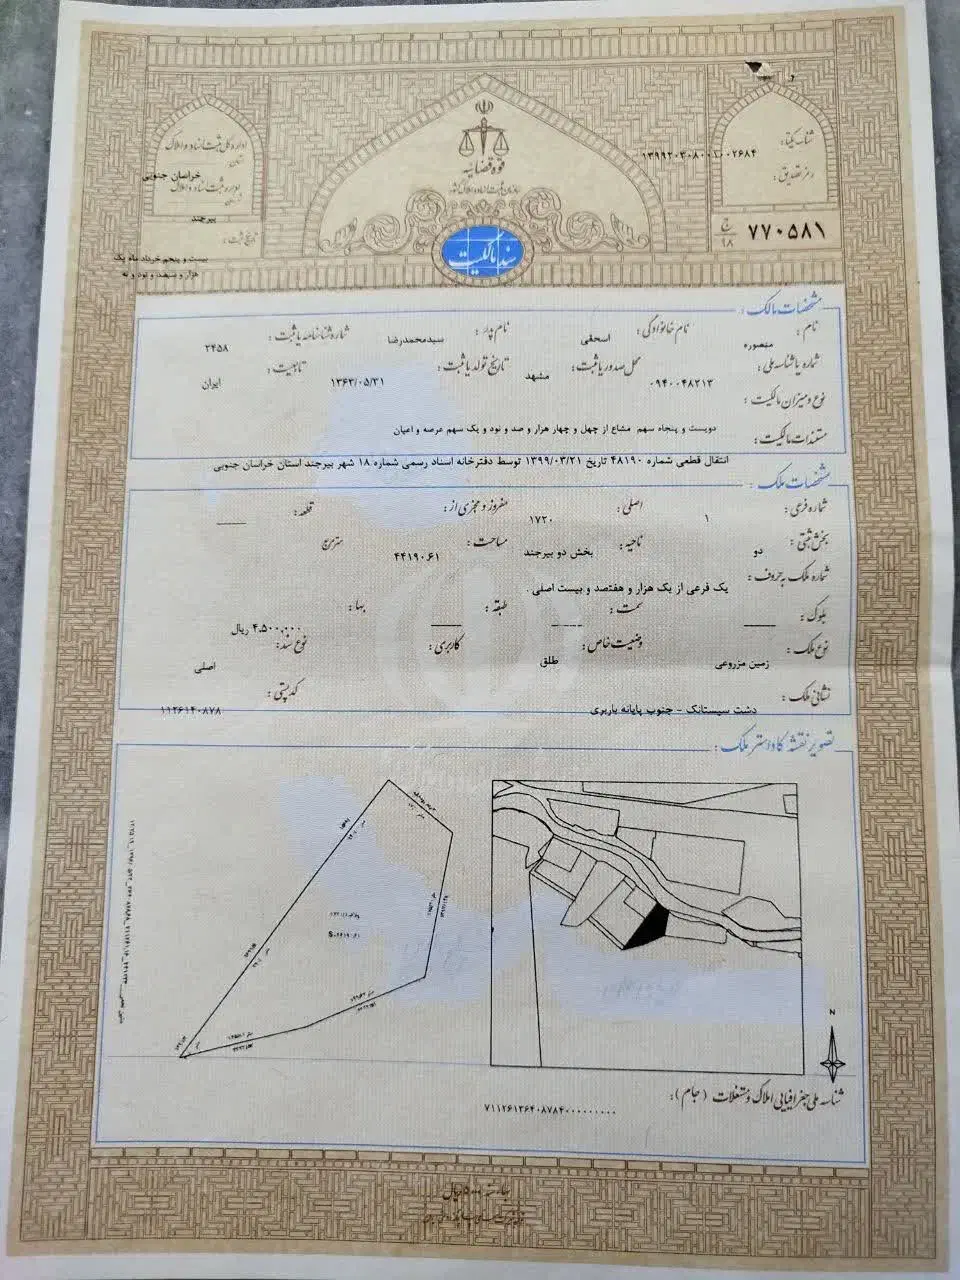 قوه قضاییه
سازمان ثبت اسناد و املاک کشور
سند مالکیت
شناسه یکتا:
۱۳۹۹۲۰۳۰۸۰۰۱۰۰۲۶۸۴
رمز تصدیق:
۷۷۰۵۸۱
ج
۹۸
اداره کل ثبت اسناد و املاک
استان
خراسان جنوبی
اداره ثبت اسناد و املاک
بیرجند
تاریخ ثبت:
بیست و پنجم خرداد ماه یک
هزار و سیصد و نود و نه
مشخصات مالک:
نام: منصوره نام خانوادگی: اسحقی نام پدر: سیدمحمدرضا شماره شناسنامه یا ثبت: ۲۴۵۸
شماره یا شناسه ملی: ۰۹۴۰۰۴۸۲۱۳ محل صدور یا ثبت: مشهد تاریخ تولد یا ثبت: ۱۳۶۳/۰۵/۳۱ تابعیت: ایران
نوع و میزان مالکیت:
دویست و پنجاه سهم مشاع از چهل و چهار هزار و صد و نود و یک سهم عرصه و اعیان
مستندات مالکیت:
انتقال قطعی شماره ۴۸۱۹۰ تاریخ ۱۳۹۹/۰۳/۲۱ توسط دفترخانه اسناد رسمی شماره ۱۸ شهر بیرجند استان خراسان جنوبی
مشخصات ملک:
شماره فرعی: ۱ اصلی: ۱۷۲۰ مفروز و مجزی از: قطعه:
بخش ثبتی: دو ناحیه: بخش دو بیرجند مساحت: ۴۴۱۹۰.۶۱ مترمربع
شماره ملک به حروف:
یک فرعی از یک هزار و هفتصد و بیست اصلی .
بلوک: سمت: طبقه: بها: ۴،۵۰۰،۰۰۰ ریال
نوع ملک: زمین مزروعی وضعیت خاص: طلق کاربری: نوع سند: اصلی
نشانی ملک: دشت سیستانک - جنوب پایانه باربری کدپستی: ۱۱۲۶۱۴۰۸۷۸
تصویر نقشه کاداستر ملک:
N
شناسه ملی جغرافیایی املاک و مستغلات (جام):
۷۱۱۲۶۱۲۶۴۰۸۷۸۴۰۰۰۰۰۰۰۰۰۰